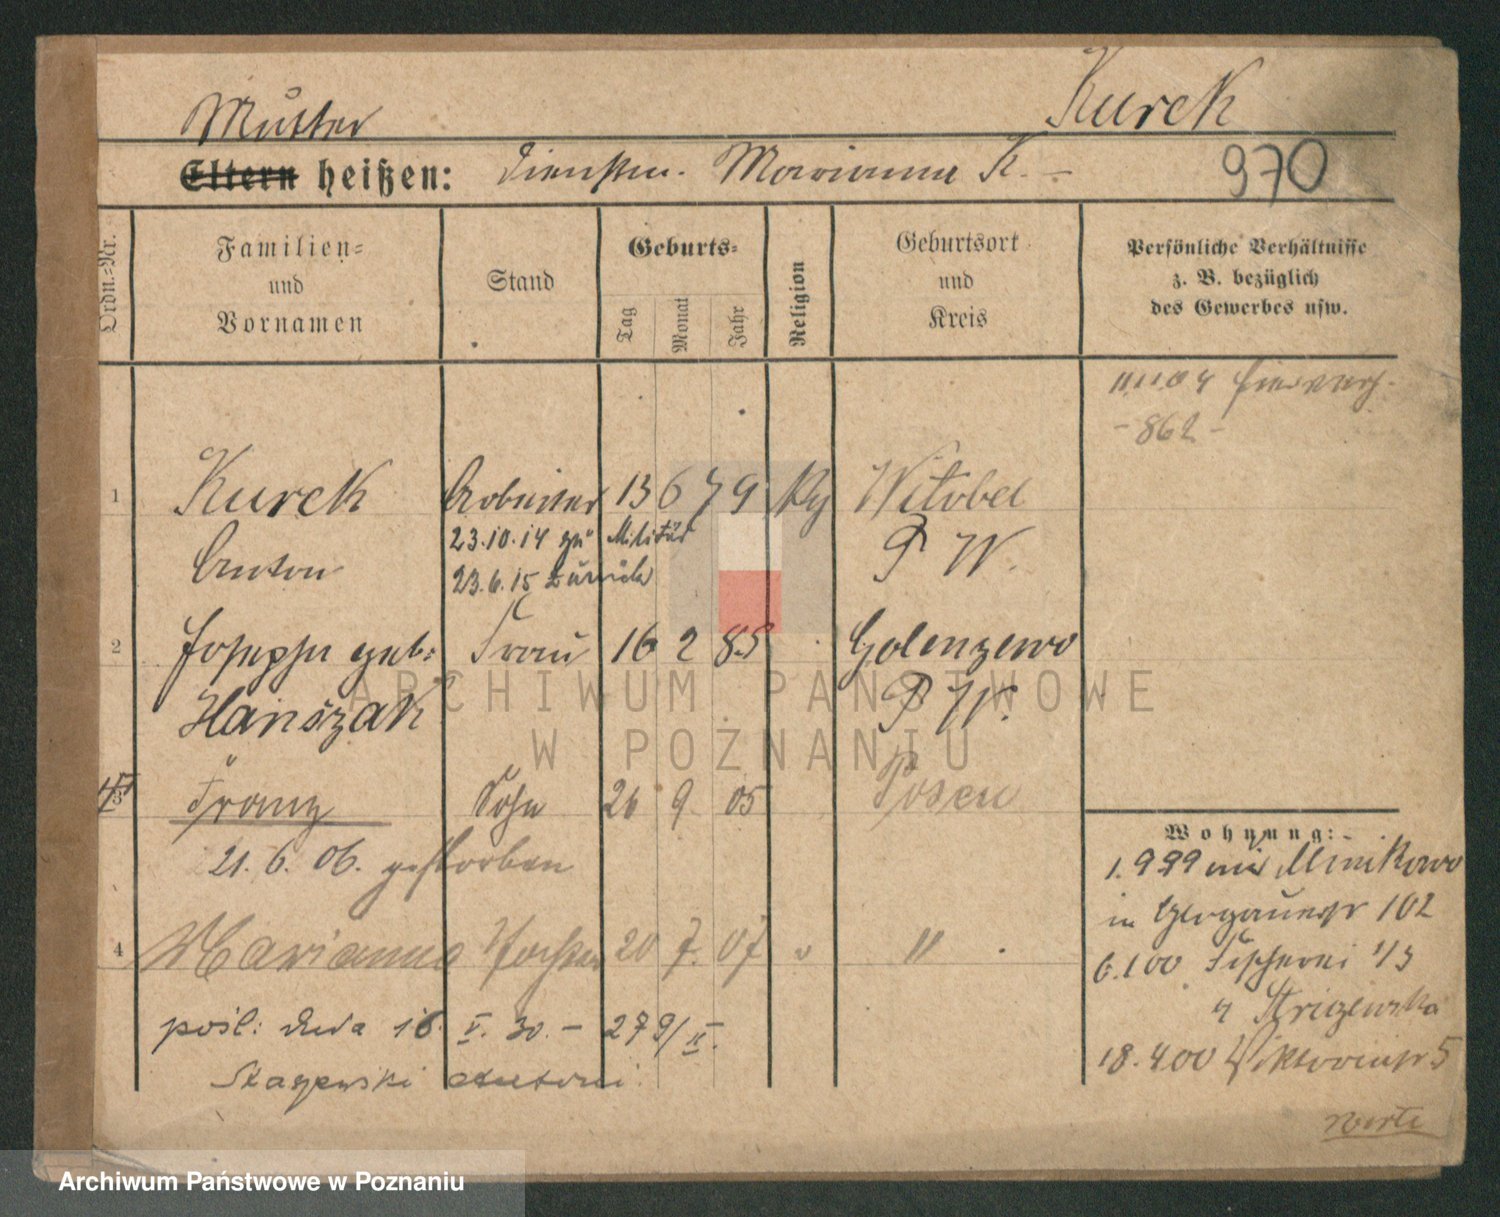 Kurek
Mutter
Eltern heißen: Dienstm. Marianna K. –
970
Ordn.-Nr.
Familien-
und
Vornamen
Stand
Geburts-
Tag
Monat
Jahr
Religion
Geburtsort
und
Kreis
Persönliche Verhältnisse
z. B. bezüglich
des Gewerbes usw.
11.11.04
- 862 -
1 Kurek Arbeiter 13 6 79 Witobel
23.10.14 zu Militär
Anton P W.
23.6.15 zurück
2 Josepha geb: Frau 16 2 85 Golenzewo
Hanszak P W.
3 Franz Sohn 26 9 05 Posen
21.6.06. gestorben
4 Marianna Tochter 20 7. 07 "
pośl: dnia 16 V. 30. – 279/II.
Antoni
Wohnung:
1.999 Minikowo
in Glogauerstr 102
6.100 Fischerei 1/3
18.400 Viktoriastr 5
verte
ARCHIWUM PAŃSTWOWE
W POZNANIU
Archiwum Państwowe w Poznaniu